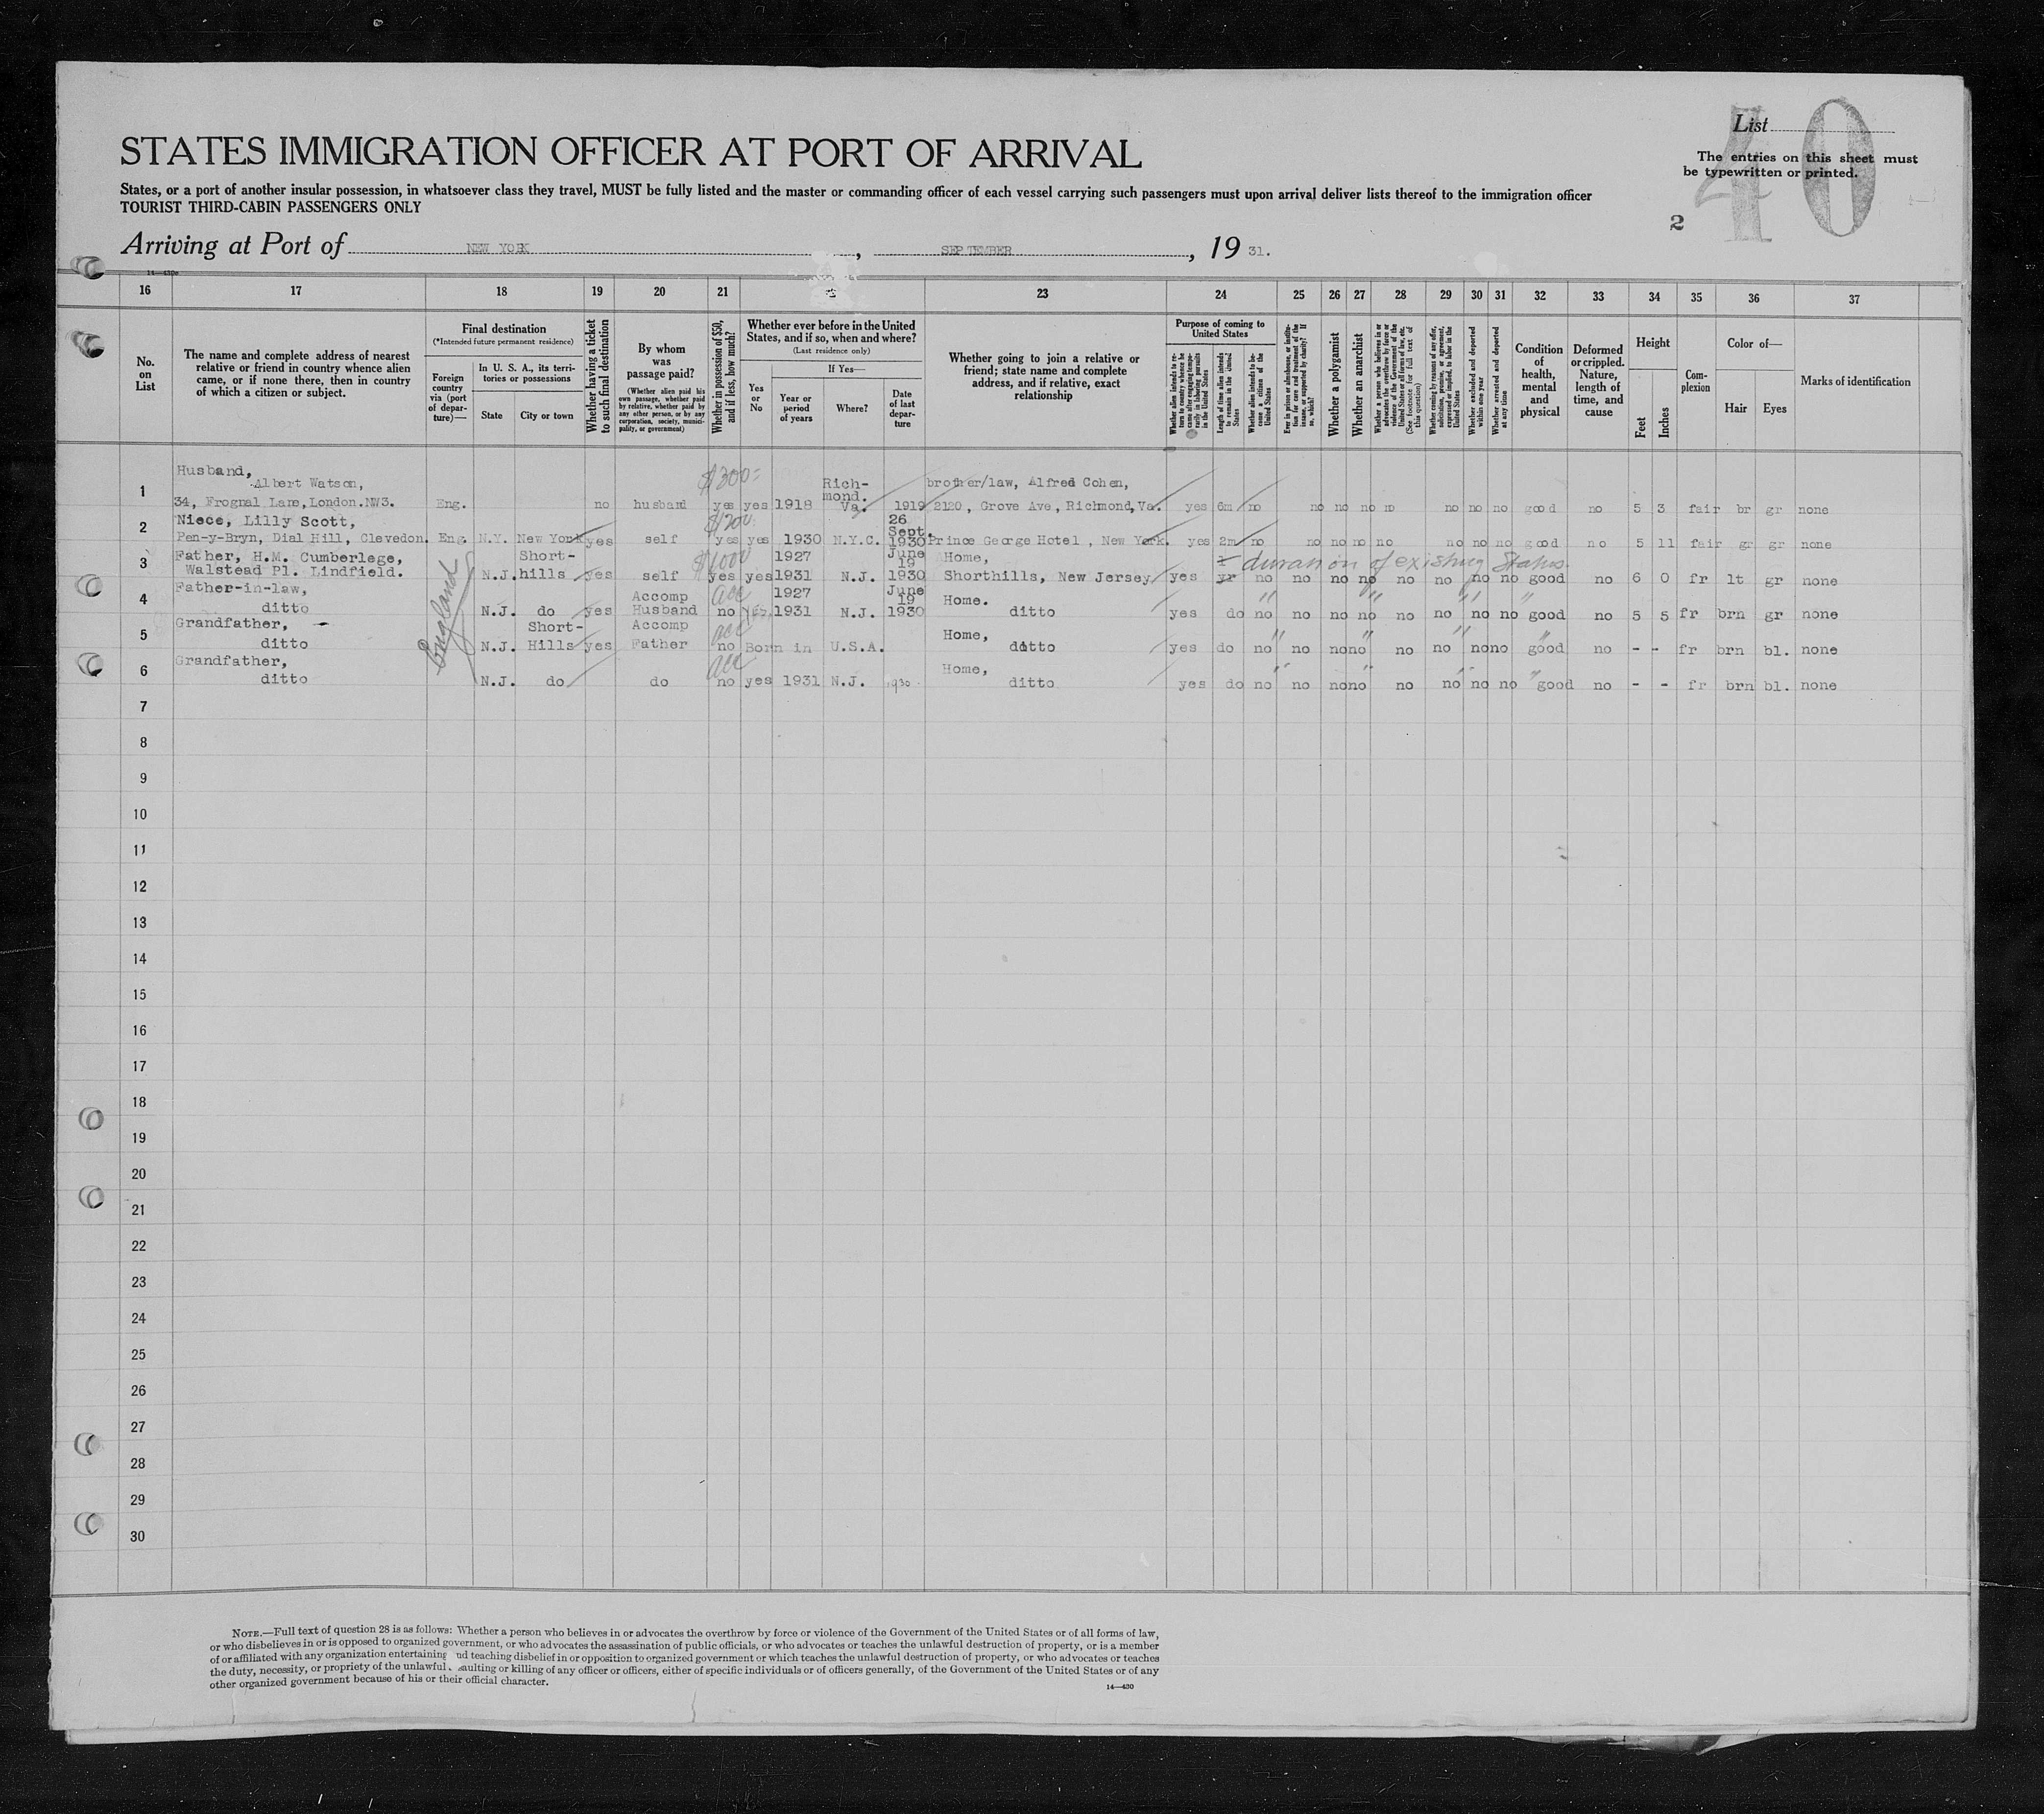 List
40
The entries on this sheet must
be typewritten or printed.
2
STATES IMMIGRATION OFFICER AT PORT OF ARRIVAL
States, or a port of another insular possession, in whatsoever class they travel, MUST be fully listed and the master or commanding officer of each vessel carrying such passengers must upon arrival deliver lists thereof to the immigration officer
TOURIST THIRD-CABIN PASSENGERS ONLY
Arriving at Port of NEW YORK , SEPTEMBER , 19 31.
16 17 18 19 20 21 23 24 25 26 27 28 29 30 31 32 33 34 35 36 37
No. on List
The name and complete address of nearest relative or friend in country whence alien came, or if none there, then in country of which a citizen or subject.
Final destination
(*Intended future permanent residence)
Foreign country via (port of departure)—
In U. S. A., its territories or possessions
State
City or town
Whether having a ticket to such final destination
By whom was passage paid?
(Whether alien paid his own passage, whether paid by relative, whether paid by any other person, or by any corporation, society, municipality, or government)
Whether in possession of $50, and if less, how much?
Whether ever before in the United States, and if so, when and where?
(Last residence only)
Yes or No
If Yes—
Year or period of years
Where?
Date of last departure
Whether going to join a relative or friend; state name and complete address, and if relative, exact relationship
Purpose of coming to United States
Length of time alien intends to remain in the United States
Whether alien intends to become a citizen of the United States
Whether a polygamist
Whether an anarchist
Whether excluded and deported within one year
Whether arrested and deported at any time
Condition of health, mental and physical
Deformed or crippled. Nature, length of time, and cause
Height
Feet
Inches
Complexion
Color of—
Hair
Eyes
Marks of identification
1 Husband, Albert Watson, 34, Frognal Lane, London.NW3. Eng. no husband $300 yes yes 1918 Richmond. Va. 1919 brother/law, Alfred Cohen, 2120, Grove Ave, Richmond, Va. yes 6m no no no no no no no no good no 5 3 fair br gr none
2 Niece, Lilly Scott, Pen-y-Bryn, Dial Hill, Clevedon. Eng. N.Y. New York yes self $200 yes yes 1930 N.Y.C. 26 Sept. 1930 Prince George Hotel, New York. yes 2m no no no no no no no no good no 5 11 fair gr gr none
3 Father, H.M. Cumberlege, Walstead Pl. Lindfield. England N.J. Short-hills yes self $1000 yes yes 1927 1931 N.J. June 19 1930 Home, Shorthills, New Jersey yes yr duration of existing Status. no no no no no no no no good no 6 0 fr lt gr none
4 Father-in-law, ditto N.J. do yes Accomp Husband acc no yes 1927 1931 N.J. June 19 1930 Home. ditto yes do no no no no no no no no good no 5 5 fr brn gr none
5 Grandfather, ditto N.J. Short-Hills yes Accomp Father acc no Born in U.S.A. Home, ditto yes do no no no no no no no no good no - - fr brn bl. none
6 Grandfather, ditto N.J. do do acc no yes 1931 N.J. 1930 Home, ditto yes do no no no no no no no no good no - - fr brn bl. none
7
8
9
10
11
12
13
14
15
16
17
18
19
20
21
22
23
24
25
26
27
28
29
30
NOTE.—Full text of question 28 is as follows: Whether a person who believes in or advocates the overthrow by force or violence of the Government of the United States or of all forms of law,
or who disbelieves in or is opposed to organized government, or who advocates the assassination of public officials, or who advocates or teaches the unlawful destruction of property, or is a member
of or affiliated with any organization entertaining nd teaching disbelief in or opposition to organized government or which teaches the unlawful destruction of property, or who advocates or teaches
the duty, necessity, or propriety of the unlawful aulting or killing of any officer or officers, either of specific individuals or of officers generally, of the Government of the United States or of any
other organized government because of his or their official character.
14—430